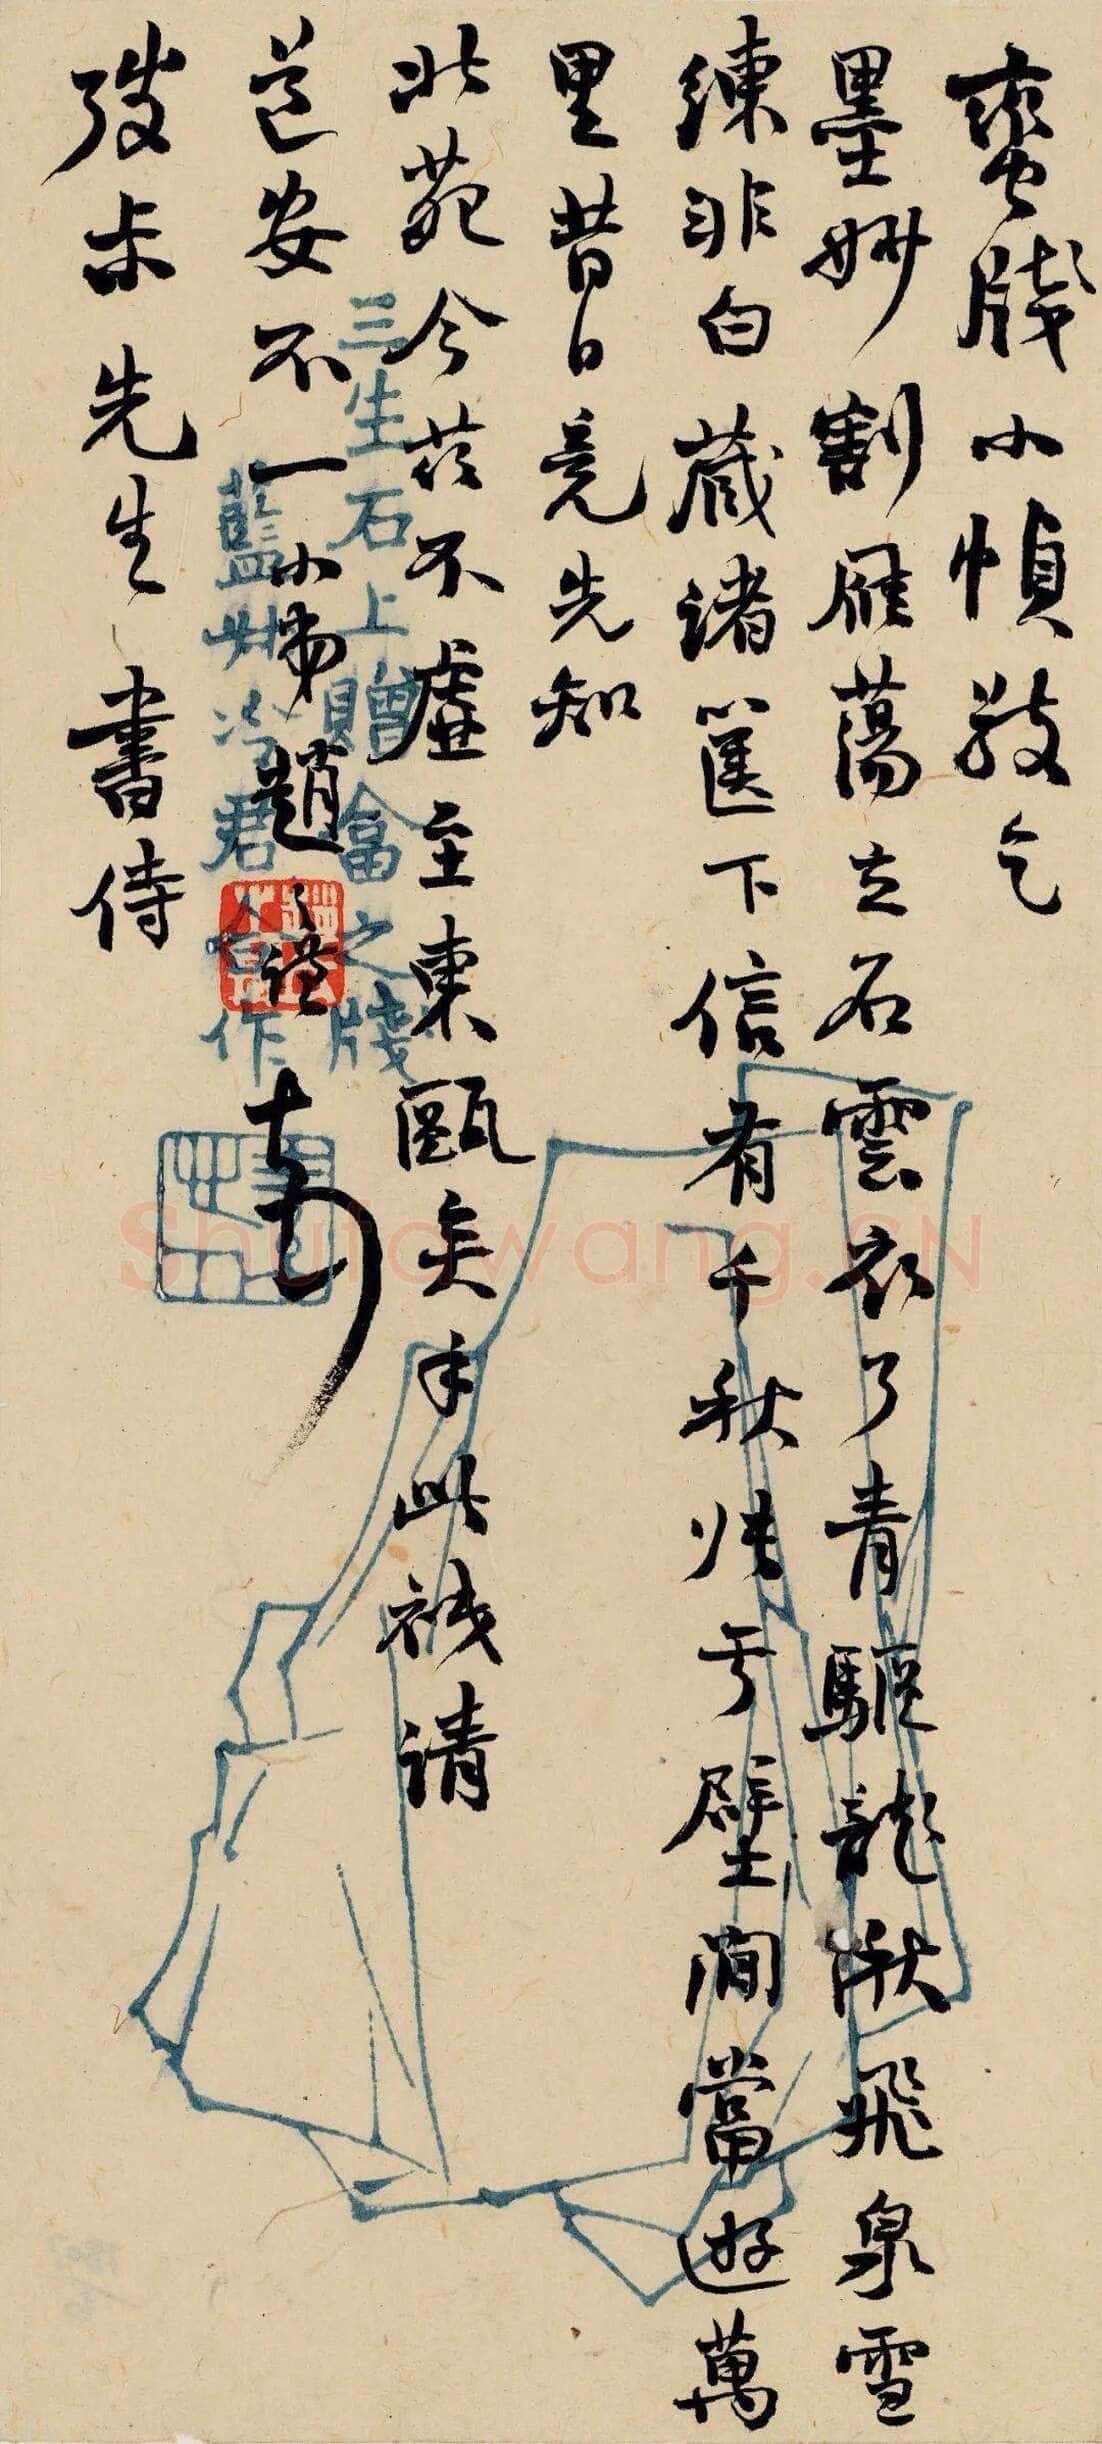 蛮牋小幀敬乞
墨妙割雁蕩之石雲衣了青驅龍湫飛泉雪
練非白藏諸篋下信有千秋張于壁間當遊萬
里昔日竟先知
北苑今茲不虛至東甌矣手此祇請
道安不一小弟趙之謙頓首
弢未先生書侍
三生石上贈翕之牋
藍州冷君翕作
Shufawang.CN